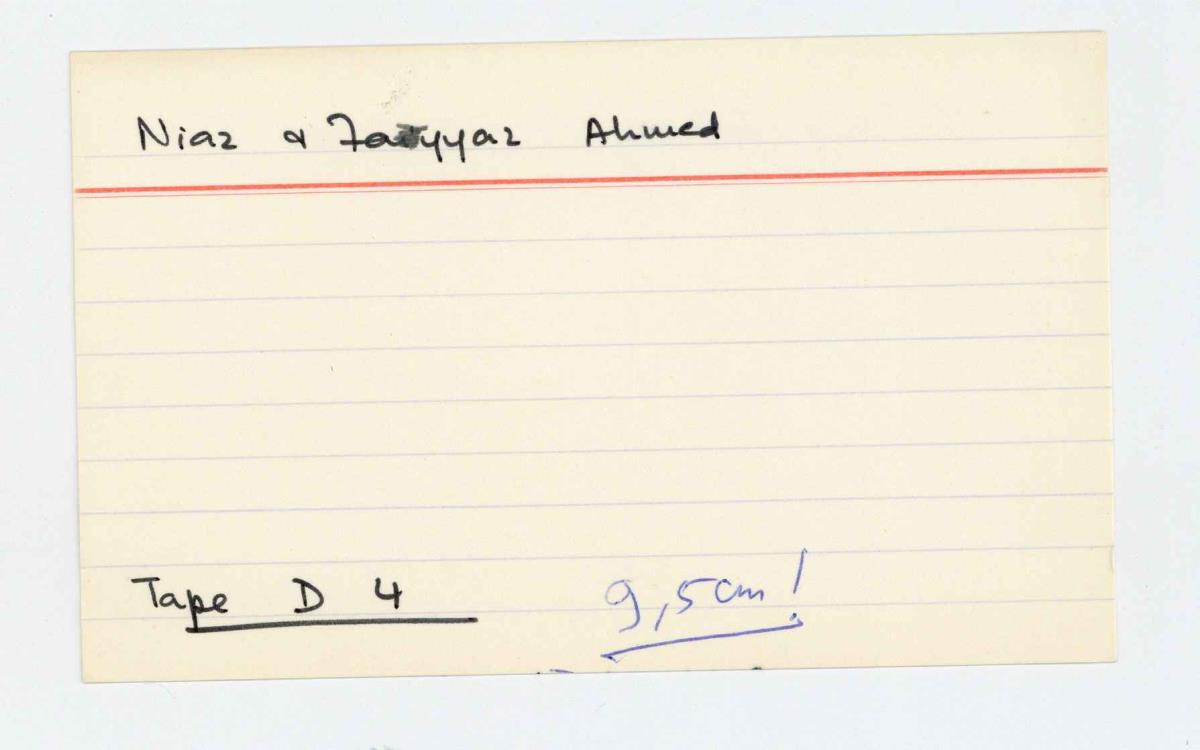 Niaz & Fayyaz Ahmed
Tape D 4 9,5 cm!